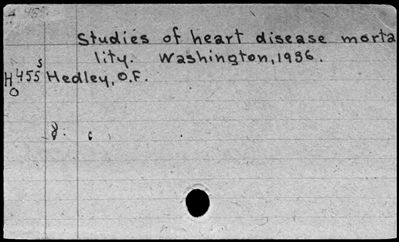 Studies of heart disease morta
lity. Washington, 1936.
S
H455 Hedley, O.F.
O